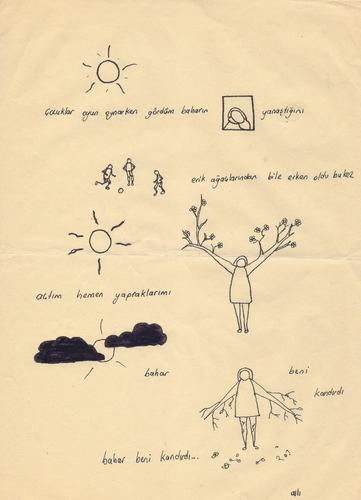 çocuklar oyun oynarken gördüm baharın yanaştığını
erik ağaçlarından bile erken oldu bu kez
açtım hemen yapraklarımı
bahar
beni
kandırdı
bahar beni kandırdı...